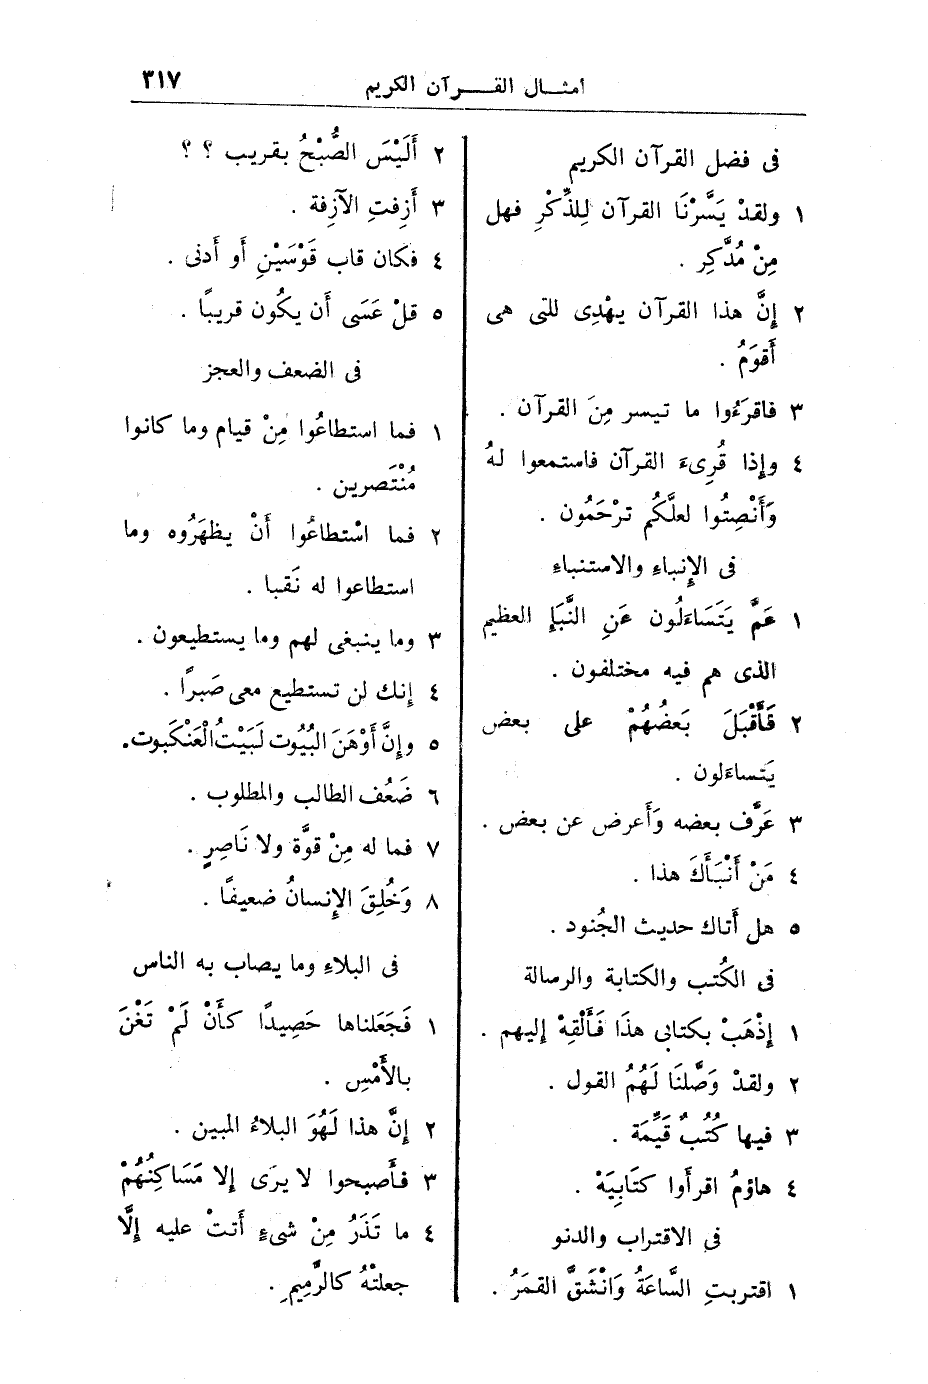 أمثال القرآن الكريم
٣١٧
فى فضل القرآن الكريم
١ ولقدْ يَسَّرْنَا القرآن لِلذِّكْرِ فهل
مِنْ مُدَّكِر .
٢ إنَّ هذا القرآن يهْدِى للتى هى
أَقوَمُ .
٣ فاقرَءُوا ما تيسر مِنَ القرآن .
٤ وإذا قُرِىءَ القرآن فاستمعوا لهُ
وَأَنْصِتُوا لعلَّكُم ترْحَمُون .
فى الإنباء والاستنباء
١ عَمَّ يَتَسَاءَلُون عَنِ النَّبَإِ العظيم
الذى هم فيه مختلفون .
٢ فَأَقْبَلَ بَعضُهُمْ على بعض
يَتساءَلون .
٣ عَرَّف بعضه وَأَعرض عن بعض .
٤ مَنْ أَنْبَأَكَ هذا .
٥ هل أَتاك حديث الجُنود .
فى الكُتب والكتابة والرسالة
١ إذْهَبْ بكتابى هذَا فَأَلْقِهْ إليهم .
٢ ولقدْ وَصَّلنَا لَهُمُ القول .
٣ فيها كُتُبٌ قَيِّمَة .
٤ هاؤمُ اقرأُوا كتَابِيَهْ .
فى الاقتراب والدنو
١ اقتربتِ السَّاعَةُ وَانْشَقَّ القمَرُ .
٢ أَلَيْسَ الصُّبْحُ بقريب ؟ ؟
٣ أَزِفتِ الآزِفة .
٤ فكان قاب قَوْسَيْنِ أَو أَدنى .
٥ قلْ عَسَى أَن يكُون قريبًا .
فى الضعف والعجز
١ فما استطاعُوا مِنْ قيام وما كانوا
مُنْتَصرين .
٢ فما اسْتطاعُوا أَنْ يظهَرُوه وما
استطاعوا له نَقبا .
٣ وما ينبغى لهم وما يستطيعون .
٤ إنك لن تستطيع معى صَبرًا .
٥ وإنَّ أَوْهَنَ البُيُوت لَبَيْتُ الْعَنْكَبوت.
٦ ضَعُف الطالب والمطلوب .
٧ فما له مِنْ قوَّة ولا نَاصِرٍ .
٨ وَخُلِقَ الإنسانُ ضعيفًا .
فى البلاءِ وما يصاب به الناس
١ فَجَعَلناها حَصِيدًا كأَنْ لَمْ تَغْنَ
بالأَمْسِ .
٢ إنَّ هذا لَهُوَ البلاءُ المبين .
٣ فأَصبحوا لا يرَى إلا مَسَاكِنُهُمْ
٤ ما تَذَرُ مِنْ شىءٍ أَتتْ عليه إلَّا
جعلتْهُ كالرَّمِيمِ .